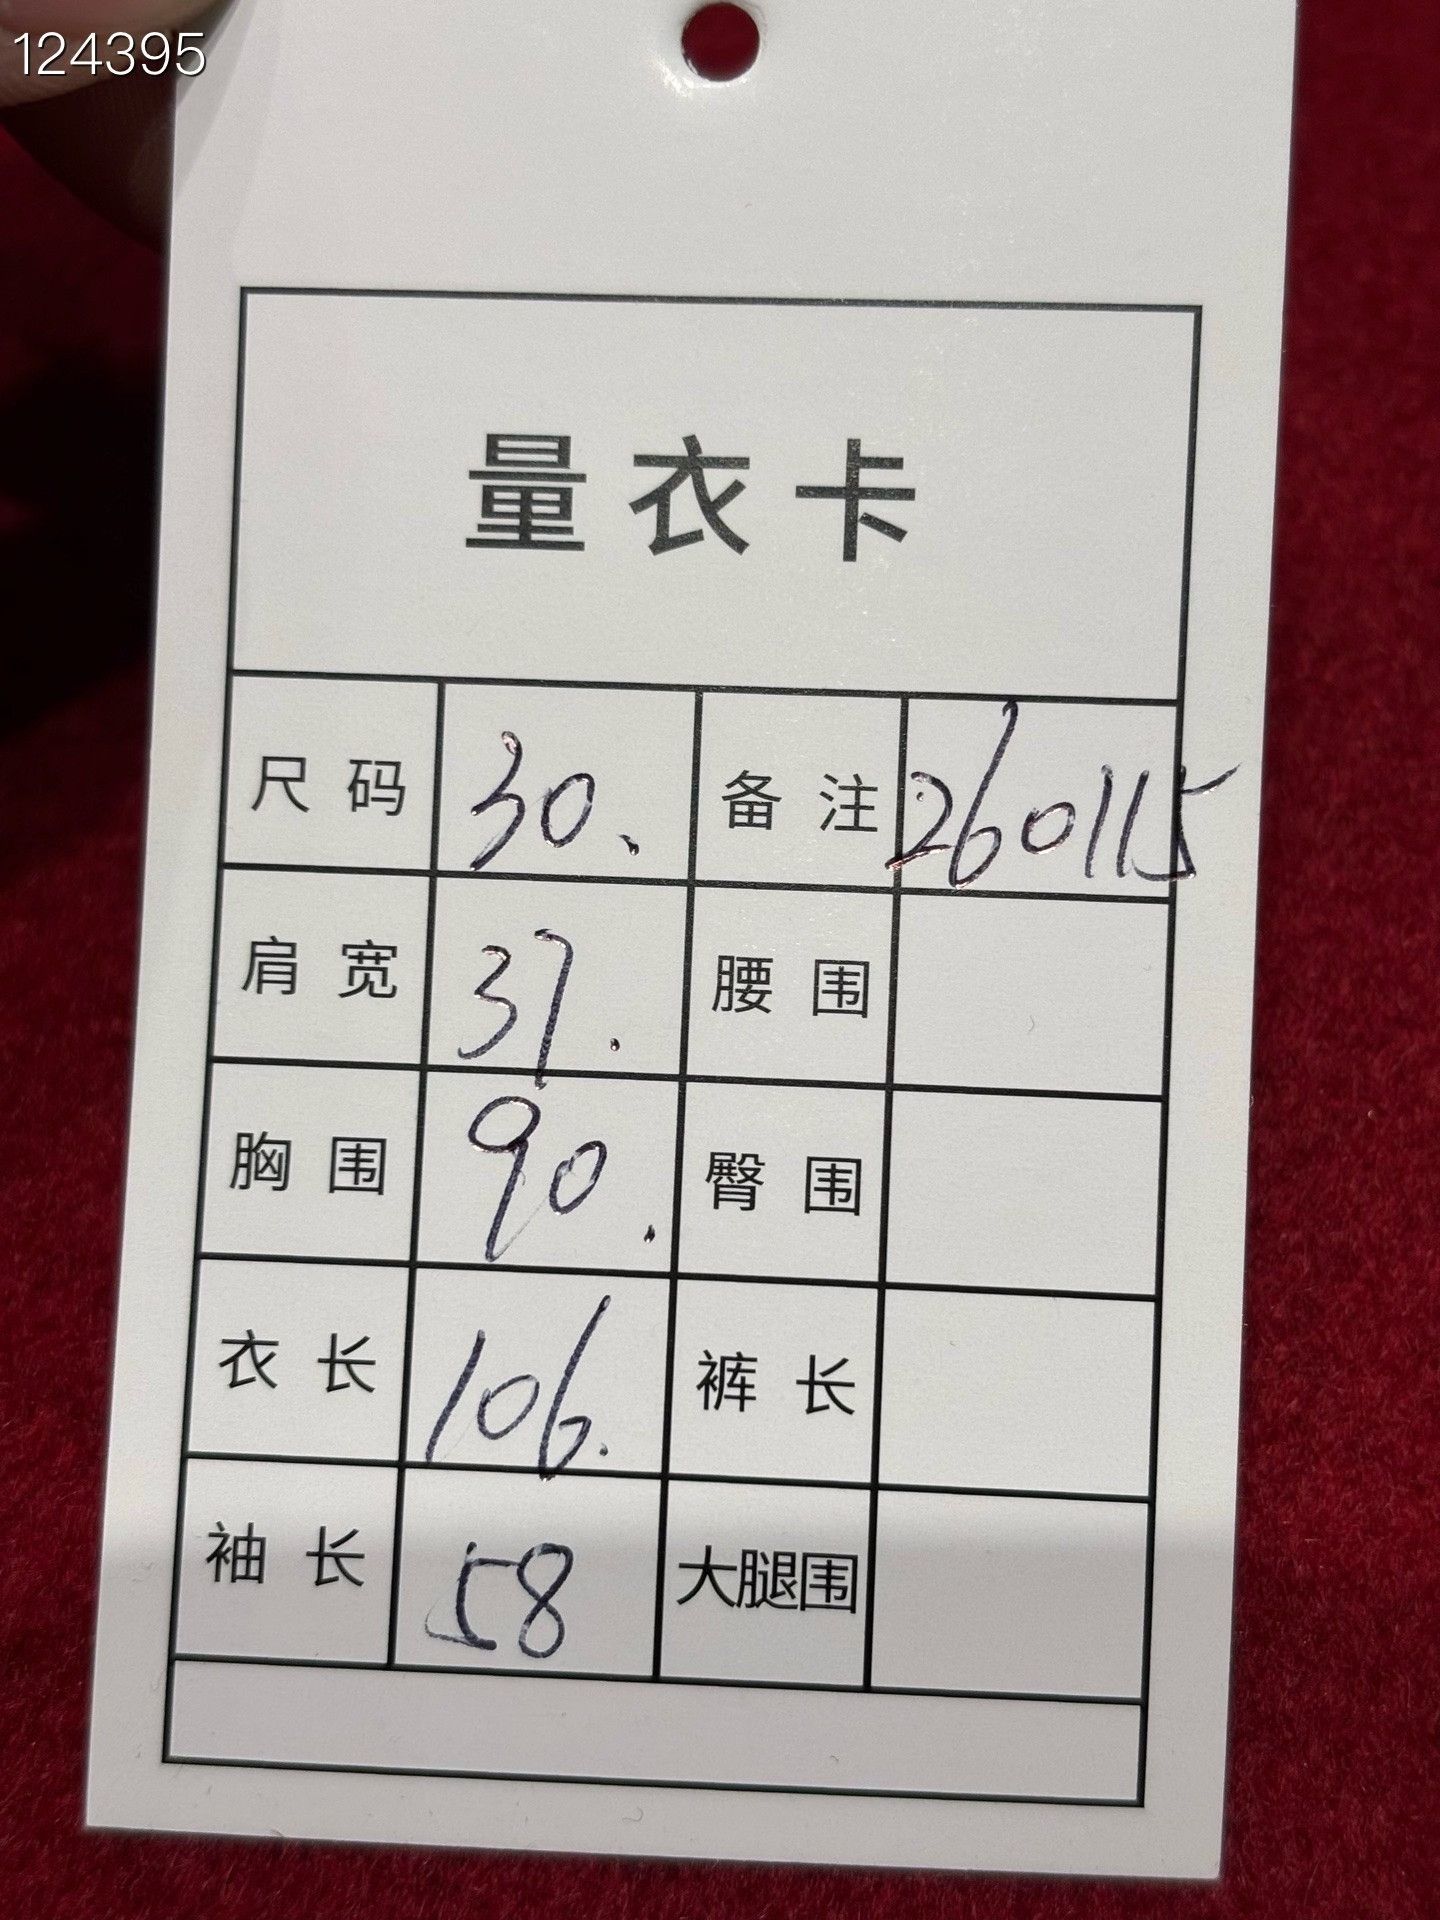 124395
量衣卡
尺码 30. 备注 260115
肩宽 37. 腰围
胸围 90. 臀围
衣长 106. 裤长
袖长 58 大腿围